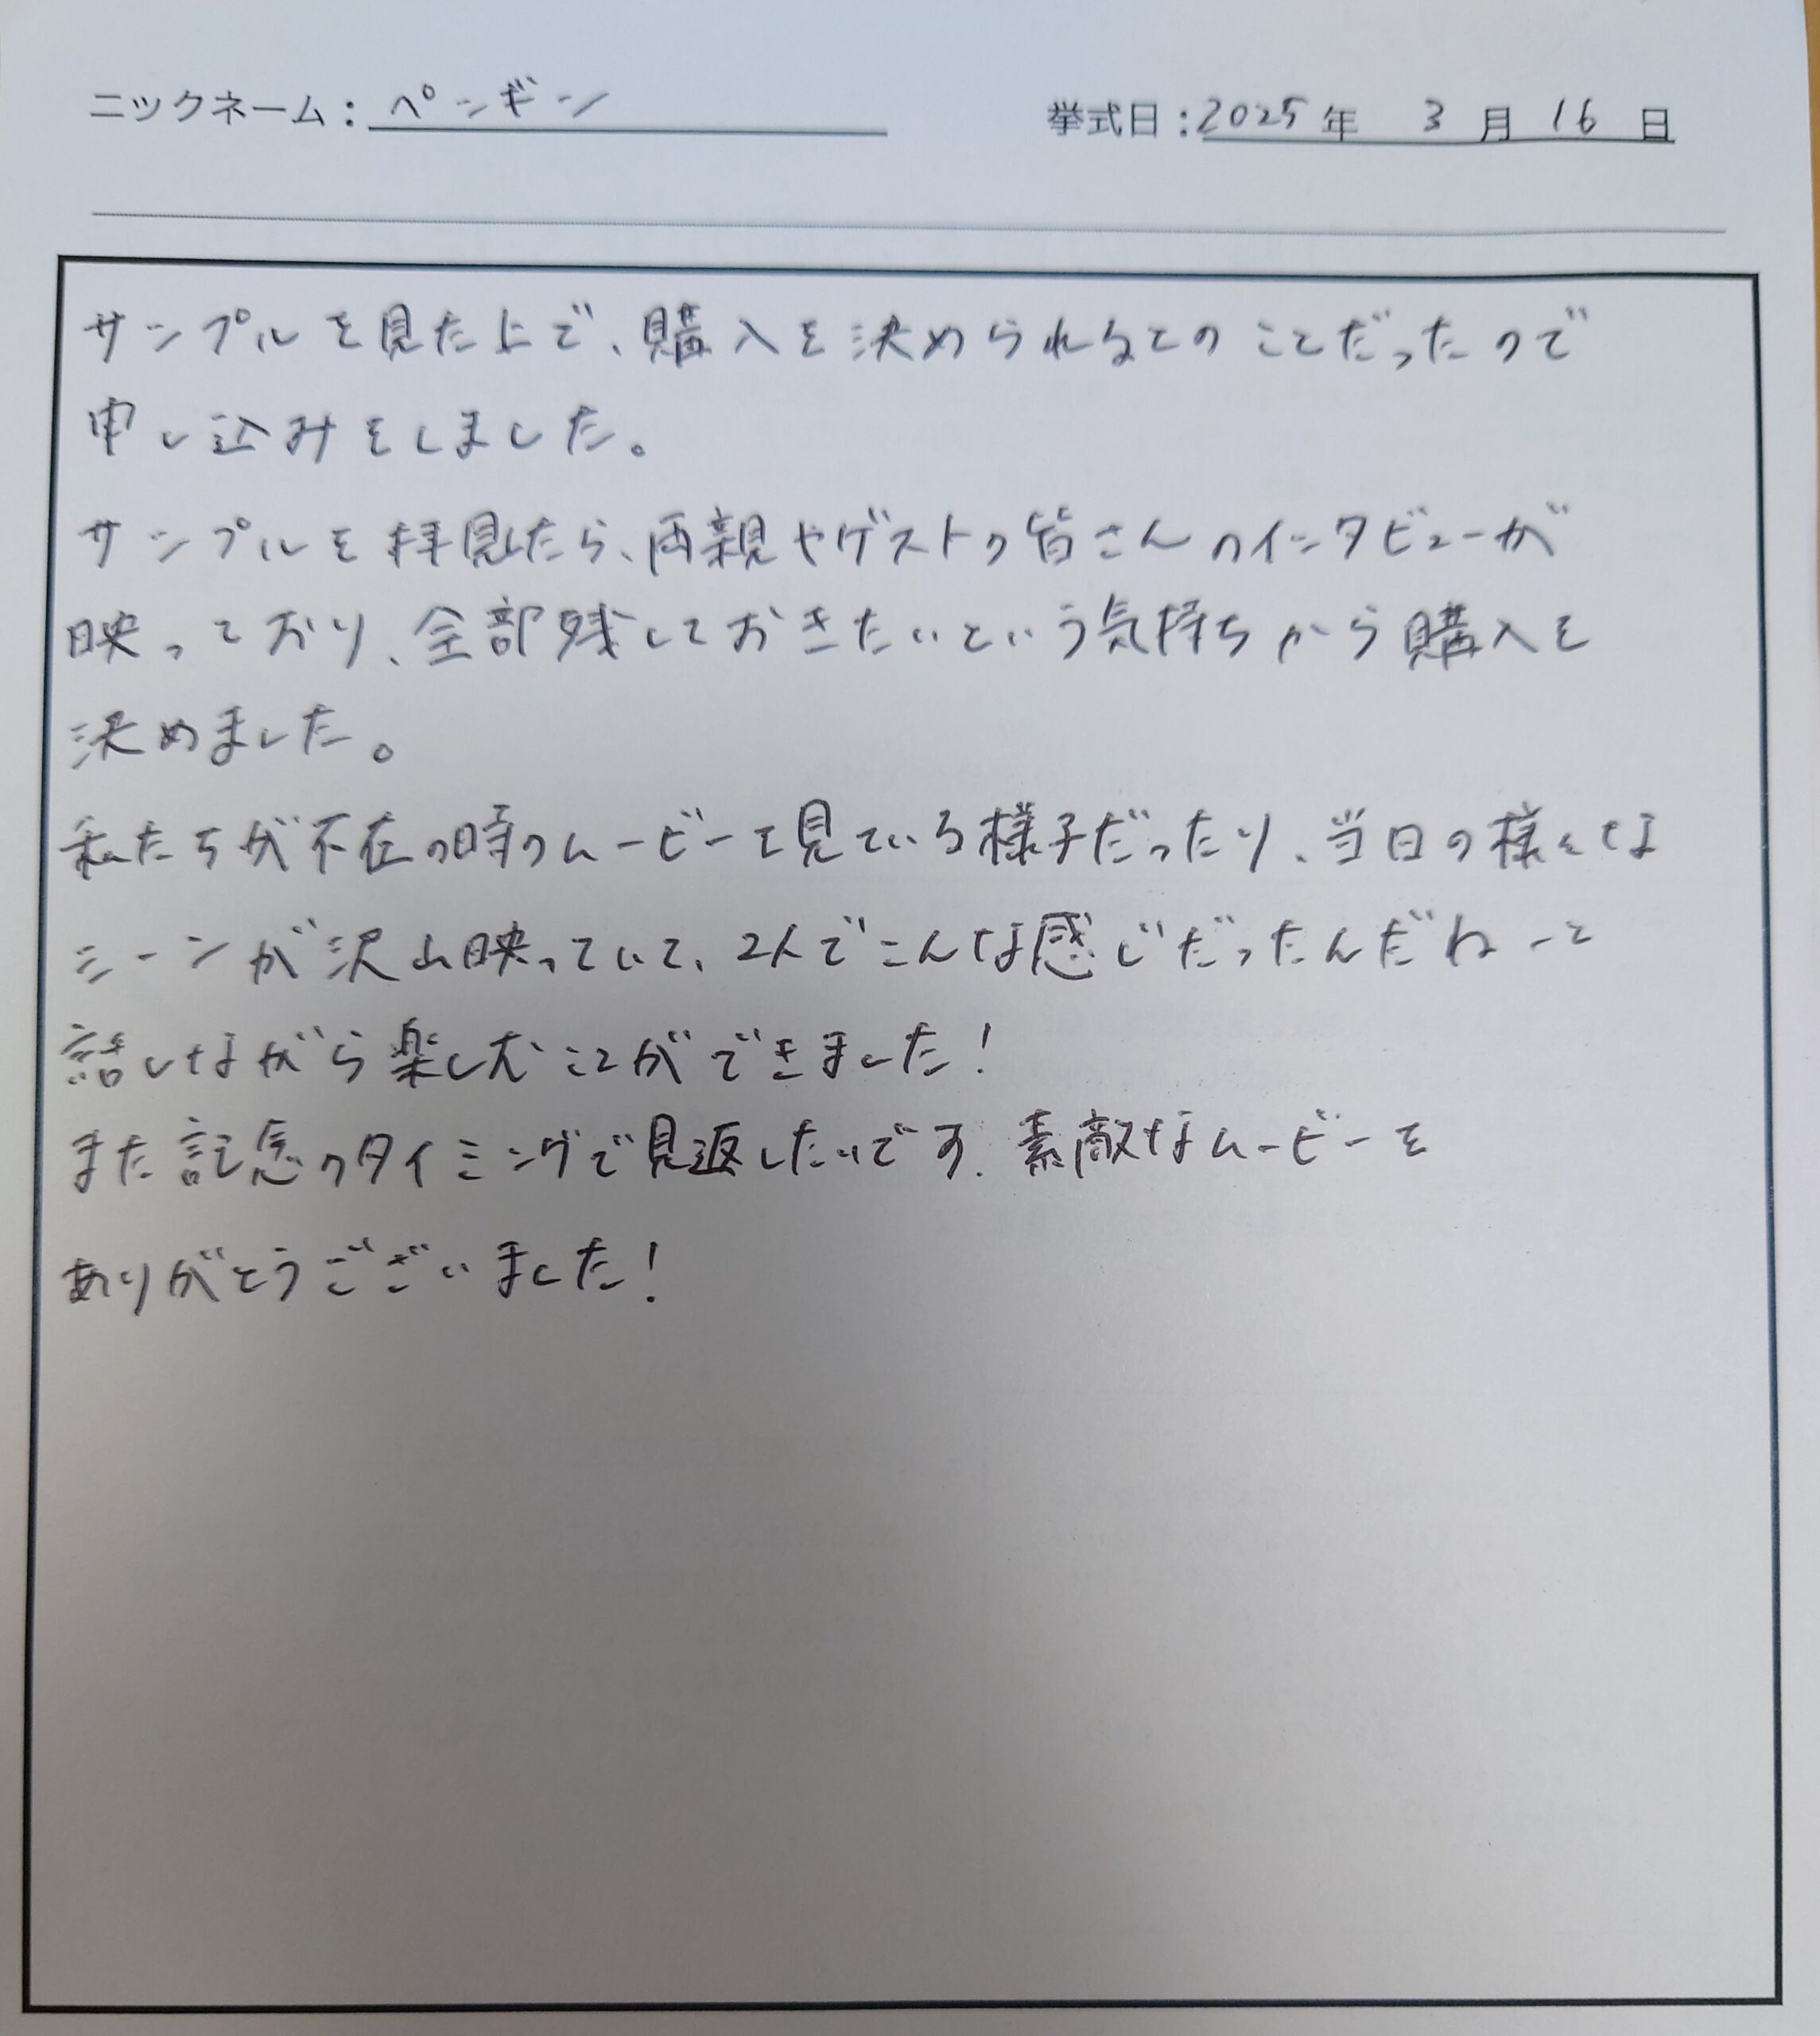 ニックネーム：ペンギン 挙式日：2025年 3月 16日
サンプルを見た上で、購入を決められるとのことだったので
申し込みをしました。
サンプルを拝見したら、両親やゲストの皆さんのインタビューが
映っており、全部残しておきたいという気持ちから購入を
決めました。
私たちが不在の時のムービーを見ている様子だったり、当日の様々な
シーンが沢山映っていて、2人でこんな感じだったんだねーと
話しながら楽しむことができました！
また記念のタイミングで見返したいです。素敵なムービーを
ありがとうございました！